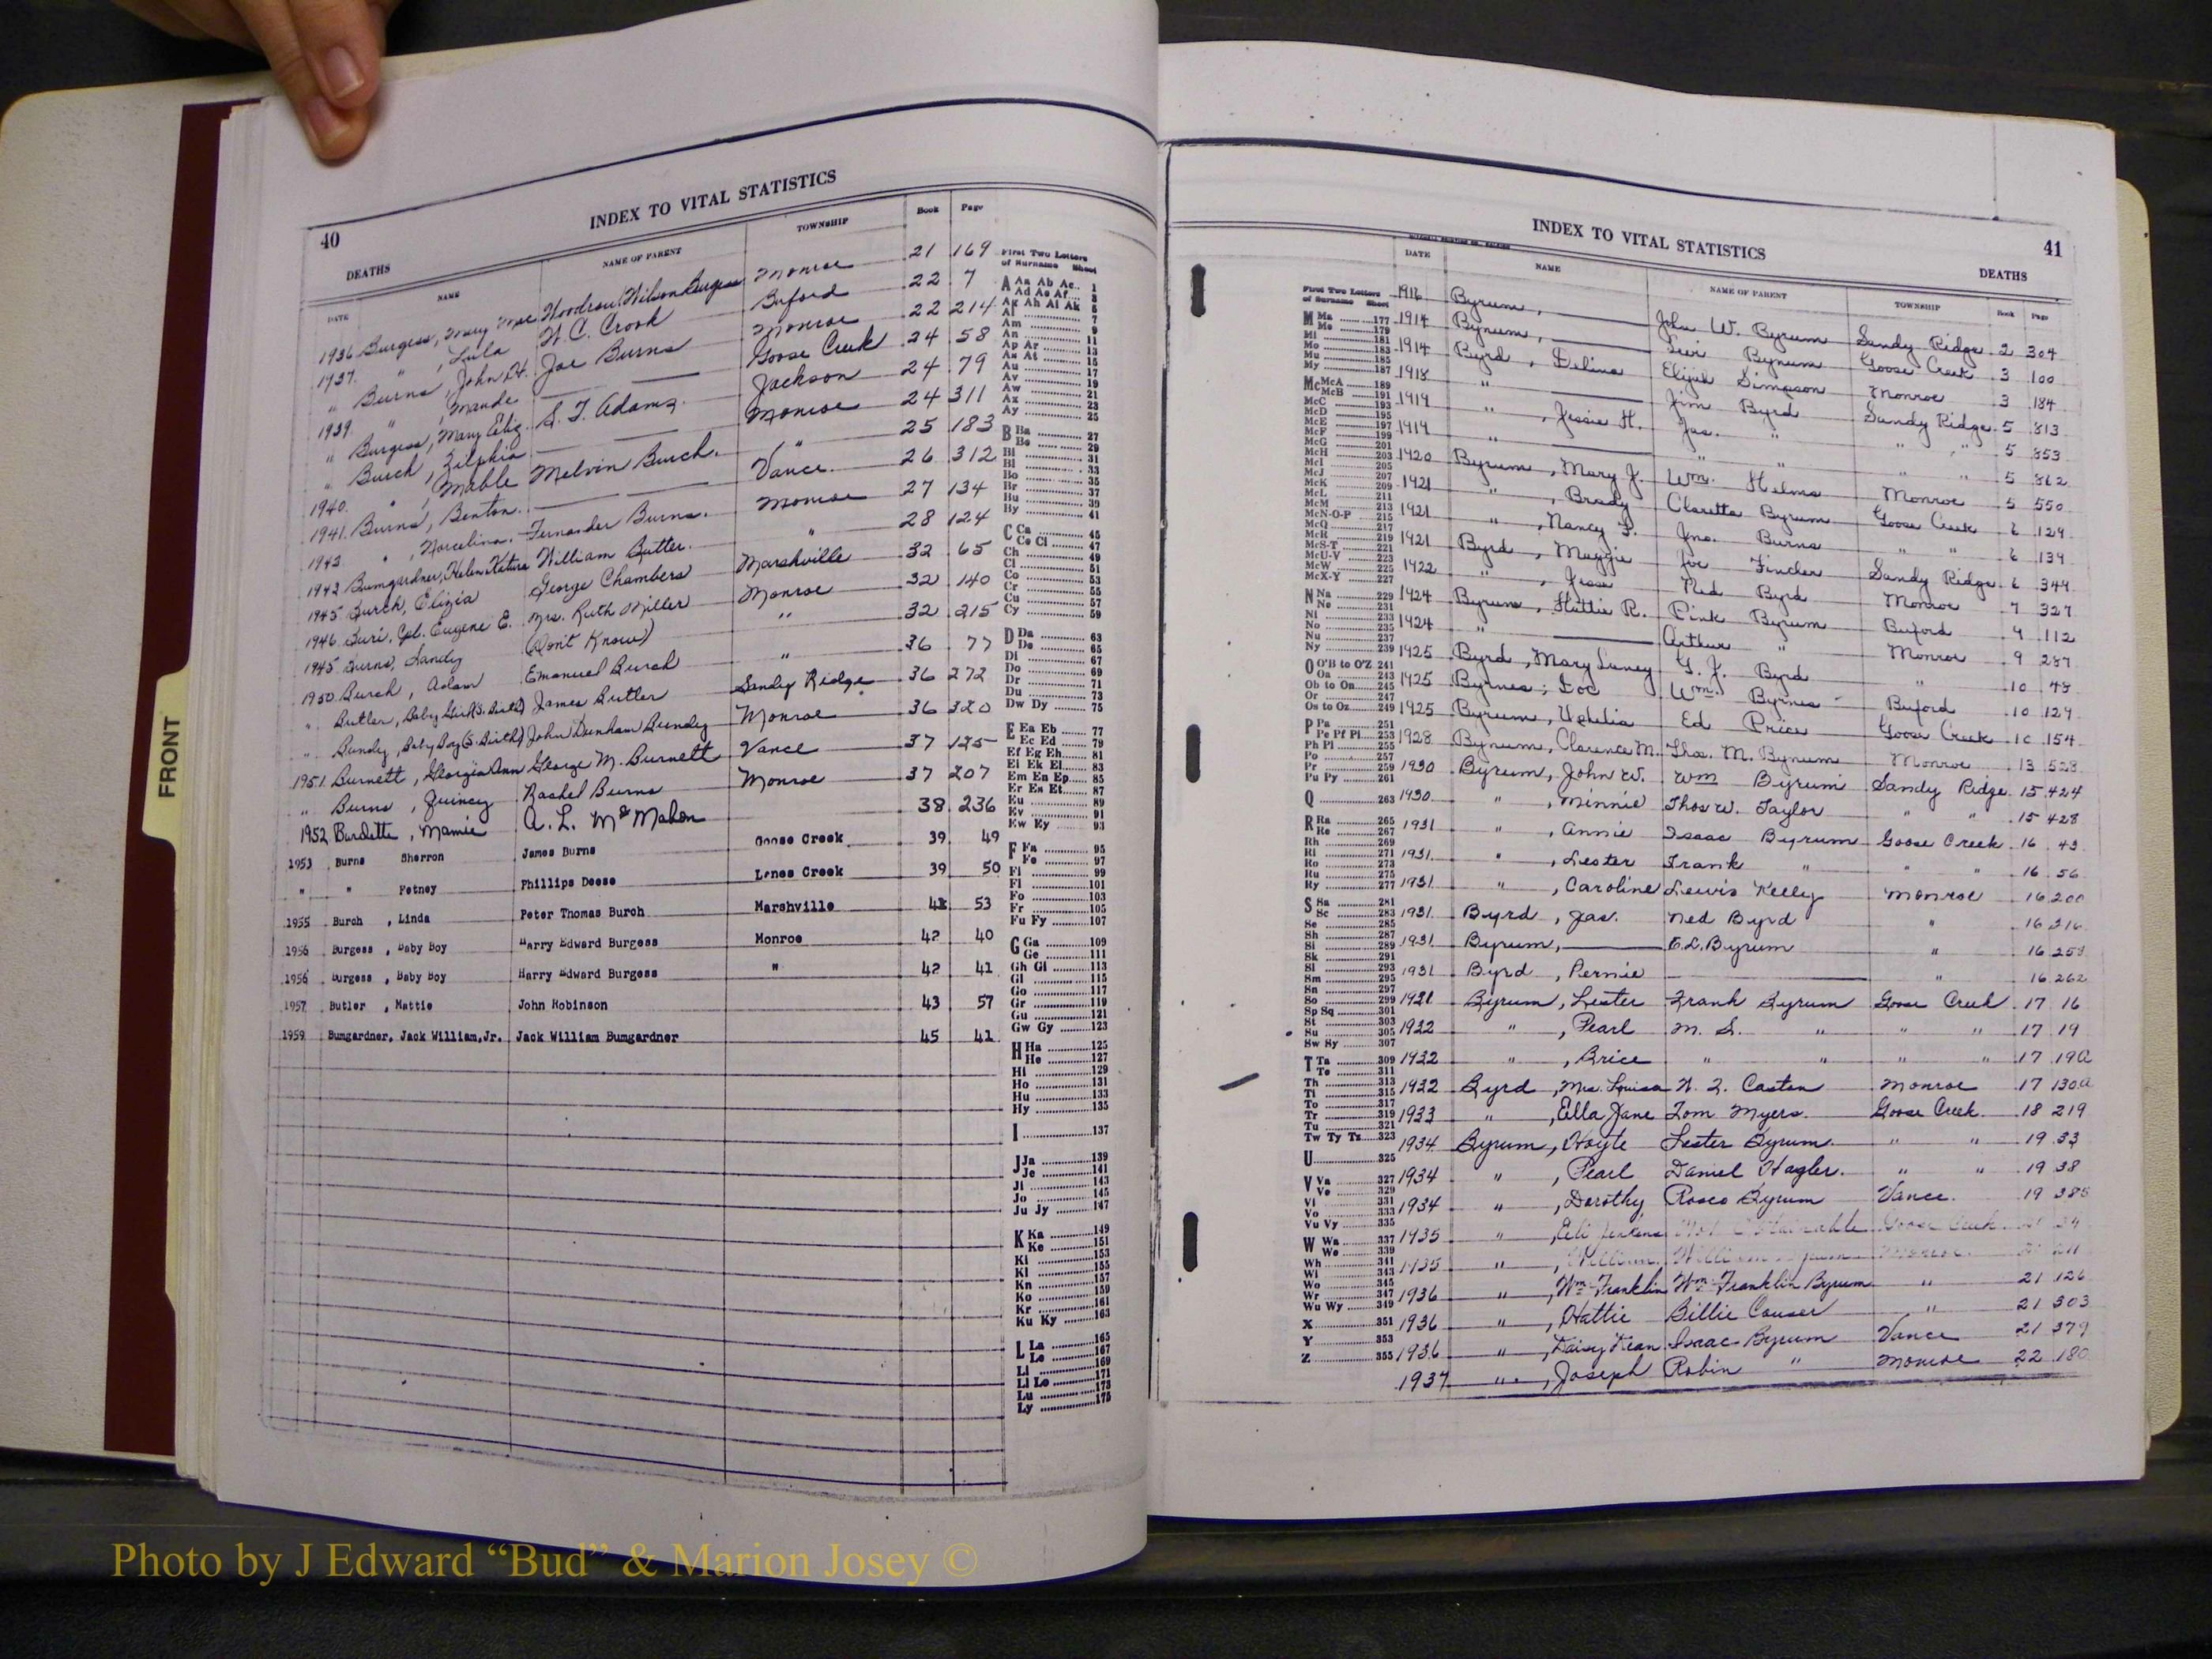 FRONT
40
INDEX TO VITAL STATISTICS
DEATHS
DATE NAME NAME OF PARENT TOWNSHIP Book Page
1936 Burgess, Mary Mae Woodrow Wilson Burgess Monroe 21 169
1937. " , Lula W. C. Crook Buford 22 7
" Burns, John H. Joe Burns Monroe 22 214
1939. " , Maude Goose Creek 24 58
" Burgess, Mary Eliz. S. T. Adams. Jackson 24 79
" Burch, Zilphia Monroe 24 311
1940. " , Mable Melvin Burch. " 25 183
1941. Burns, Benton. Vance. 26 312
1942 " , Fernander Burns. Monroe 27 134
1942 Bumgardner, Helen William Butter. " 28 124
1945 Burch, Elizia George Chambers Marshville 32 65
1946 Buri, Cpl. Eugene E. Mrs. Ruth Miller Monroe 32 140
1945 Burns, Sandy (Don't Know) " 32 215
1950 Burch, Adam Emanuel Burch " 36 77
" Butler, Baby Girl (S. Birth) James Butler Sandy Ridge 36 272
" Bundy, Baby Boy (S. Birth) John Dunham Bundy Monroe 36 320
1951. Burnett, Georgia Ann George M. Burnett Vance 37 125
" Burns, Quincy Rashel Burns Monroe 37 207
1952 Burdette, Mamie A. L. McMahon 38 236
1953 Burns Sherron James Burns Goose Creek 39 49
" " Petney Phillips Deese Lanes Creek 39 50
1955 Burch , Linda Peter Thomas Burch Marshville 53
1956 Burgess , Baby Boy Harry Edward Burgess Monroe 42 40
1956 Burgess , Baby Boy Harry Edward Burgess " 42 41
1957 Butler , Mattie John Robinson 43 57
1959 Bumgardner, Jack William, Jr. Jack William Bumgardner 45 41
First Two Letters
of Surname Sheet
A Aa Ab Ac 1
Ad Ae Af 3
Ag Ah Ai Ak 5
Al 7
Am 9
An 11
Ap Ar 13
As At 15
Au 17
Av 19
Aw 21
Ax 23
Ay 25
B Ba 27
Be 29
Bi 31
Bl 33
Bo 35
Br 37
Bu 39
By 41
C Ca 45
Ce Ci 47
Ch 49
Cl 51
Co 53
Cr 55
Cu 57
Cy 59
D Da 63
De 65
Di 67
Do 69
Dr 71
Du 73
Dw Dy 75
E Ea Eb 77
Ec Ed 79
Ef Eg Eh 81
Ei Ek El 83
Em En Ep 85
Er Es Et 87
Eu 89
Ev 91
Ew Ey 93
F Fa 95
Fe 97
Fi 99
Fl 101
Fo 103
Fr 105
Fu Fy 107
G Ga 109
Ge 111
Gh Gi 113
Gl 115
Go 117
Gr 119
Gu 121
Gw Gy 123
H Ha 125
He 127
Hi 129
Ho 131
Hu 133
Hy 135
I 137
J Ja 139
Je 141
Ji 143
Jo 145
Ju Jy 147
K Ka 149
Ke 151
Ki 153
Kl 155
Kn 157
Ko 159
Kr 161
Ku Ky 163
L La 165
Le 167
Li 169
Ll Lo 171
Lu 173
Ly 175
INDEX TO VITAL STATISTICS
41
DEATHS
DATE NAME NAME OF PARENT TOWNSHIP Book Page
1916 Byrum, John W. Byrum Sandy Ridge 2 304
1914 Bynum, Levi Bynum Goose Creek 3 100
1914 Byrd, Delina Elijah Simpson Monroe 3 184
1918 " Jim Byrd Sandy Ridge 5 813
1919 " , Jessie H. Jas. " " " 5 853
1919 " " " " " 5 862
1920 Byrum, Mary J. Wm. Helms Monroe 5 550
1921 " , Brady Claretta Byrum Goose Creek 6 129
1921 " , Nancy Jno. Burns " " 6 139
1921 Byrd, Maggie Joe Fincher Sandy Ridge 6 344
1922 " , Jesse Ned Byrd Monroe 7 327
1924 Byrum, Hattie R. Pink Byrum Buford 9 112
1924 " Arthur " Monroe 9 287
1925 Byrd, Mary Laney G. J. Byrd " 10 48
1925 Byrnes, Doc Wm. Byrnes Buford 10 127
1925 Byrum, Ophelia Ed Price Goose Creek 10 154
1928 Bynum, Clarence M. Thos. M. Bynum Monroe 13 528
1930 Byrum, John W. Wm Byrum Sandy Ridge 15 424
1930 " , Minnie Thos W. Taylor " " 15 428
1931 " , Annie Isaac Byrum Goose Creek 16 43
1931 " , Lester Frank " " " 16 56
1931 " , Caroline Lewis Kelly Monroe 16 200
1931 Byrd, Jas. Ned Byrd " 16 216
1931 Byrum, E. L. Byrum " 16 258
1931 Byrd, Pernie " 16 262
1931 Byrum, Lester Frank Byrum Goose Creek 17 16
1932 " , Pearl M. S. " " " 17 19
1932 " , Brice " " " " 17 19a
1932 Byrd, Mrs. Louisa Monroe 17 130a
1933 " , Ella Jane Tom Myers. Goose Creek 18 219
1934 Byrum, Hoyte Lester Byrum. " " 19 33
1934 " , Pearl Daniel Hagler. " " 19 38
1934 " , Dorothy Rosco Byrum Vance. 19 385
1935 " , Eli Jenkins Goose Creek
1935 " , William
1936 " , Wm Franklin Wm Franklin Byrum " 21 126
1936 " , Hattie Billie Couser " 21 303
1936 " , Daisy Dean Isaac Byrum Vance 21 379
1937 " , Joseph Robin " Monroe 22 180
First Two Letters
of Surname Sheet
M Ma 177
Me 179
Mi 181
Mo 183
Mu 185
My 187
Mc McA 189
McB 191
McC 193
McD 195
McE 197
McF 199
McG 201
McH 203
McI 205
McJ 207
McK 209
McL 211
McM 213
McN-O-P 215
McQ 217
McR 219
McS-T 221
McU-V 223
McW 225
McX-Y 227
N Na 229
Ne 231
Ni 233
No 235
Nu 237
Ny 239
O O'B to O'Z 241
Oa 243
Ob to On 245
Or 247
Os to Oz 249
P Pa 251
Pe Pf Pi 253
Ph Pl 255
Po 257
Pr 259
Pu Py 261
Q 263
R Ra 265
Re 267
Rh 269
Ri 271
Ro 273
Ru 275
Ry 277
S Sa 281
Sc 283
Se 285
Sh 287
Si 289
Sk 291
Sl 293
Sm 295
Sn 297
So 299
Sp Sq 301
St 303
Su 305
Sw Sy 307
T Ta 309
Te 311
Th 313
Ti 315
To 317
Tr 319
Tu 321
Tw Ty Tz 323
U 325
V Va 327
Ve 329
Vi 331
Vo 333
Vu Vy 335
W Wa 337
We 339
Wh 341
Wi 343
Wo 345
Wr 347
Wu Wy 349
X 351
Y 353
Z 355
Photo by J Edward “Bud” & Marion Josey ©